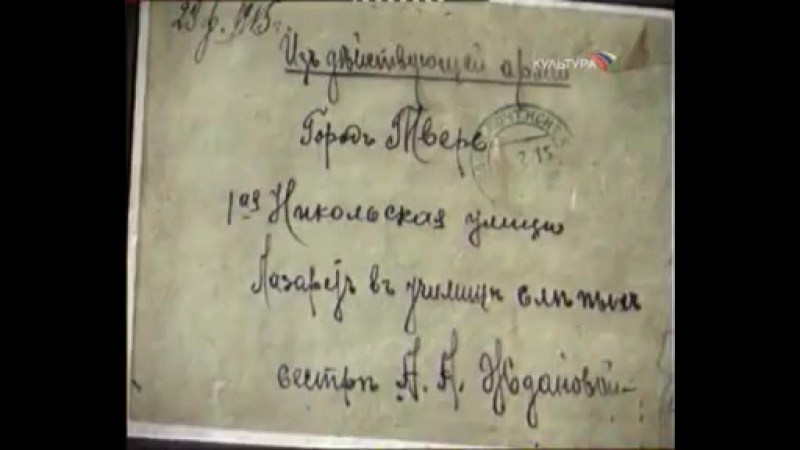 23 ф. 1915 г.
КУЛЬТУРА
Изъ дѣйствующей арміи
Городъ Тверь
1ая Никольская улица
Лазаретъ въ училищѣ слѣпыхъ
сестрѣ А. А. Ждановой
2 15